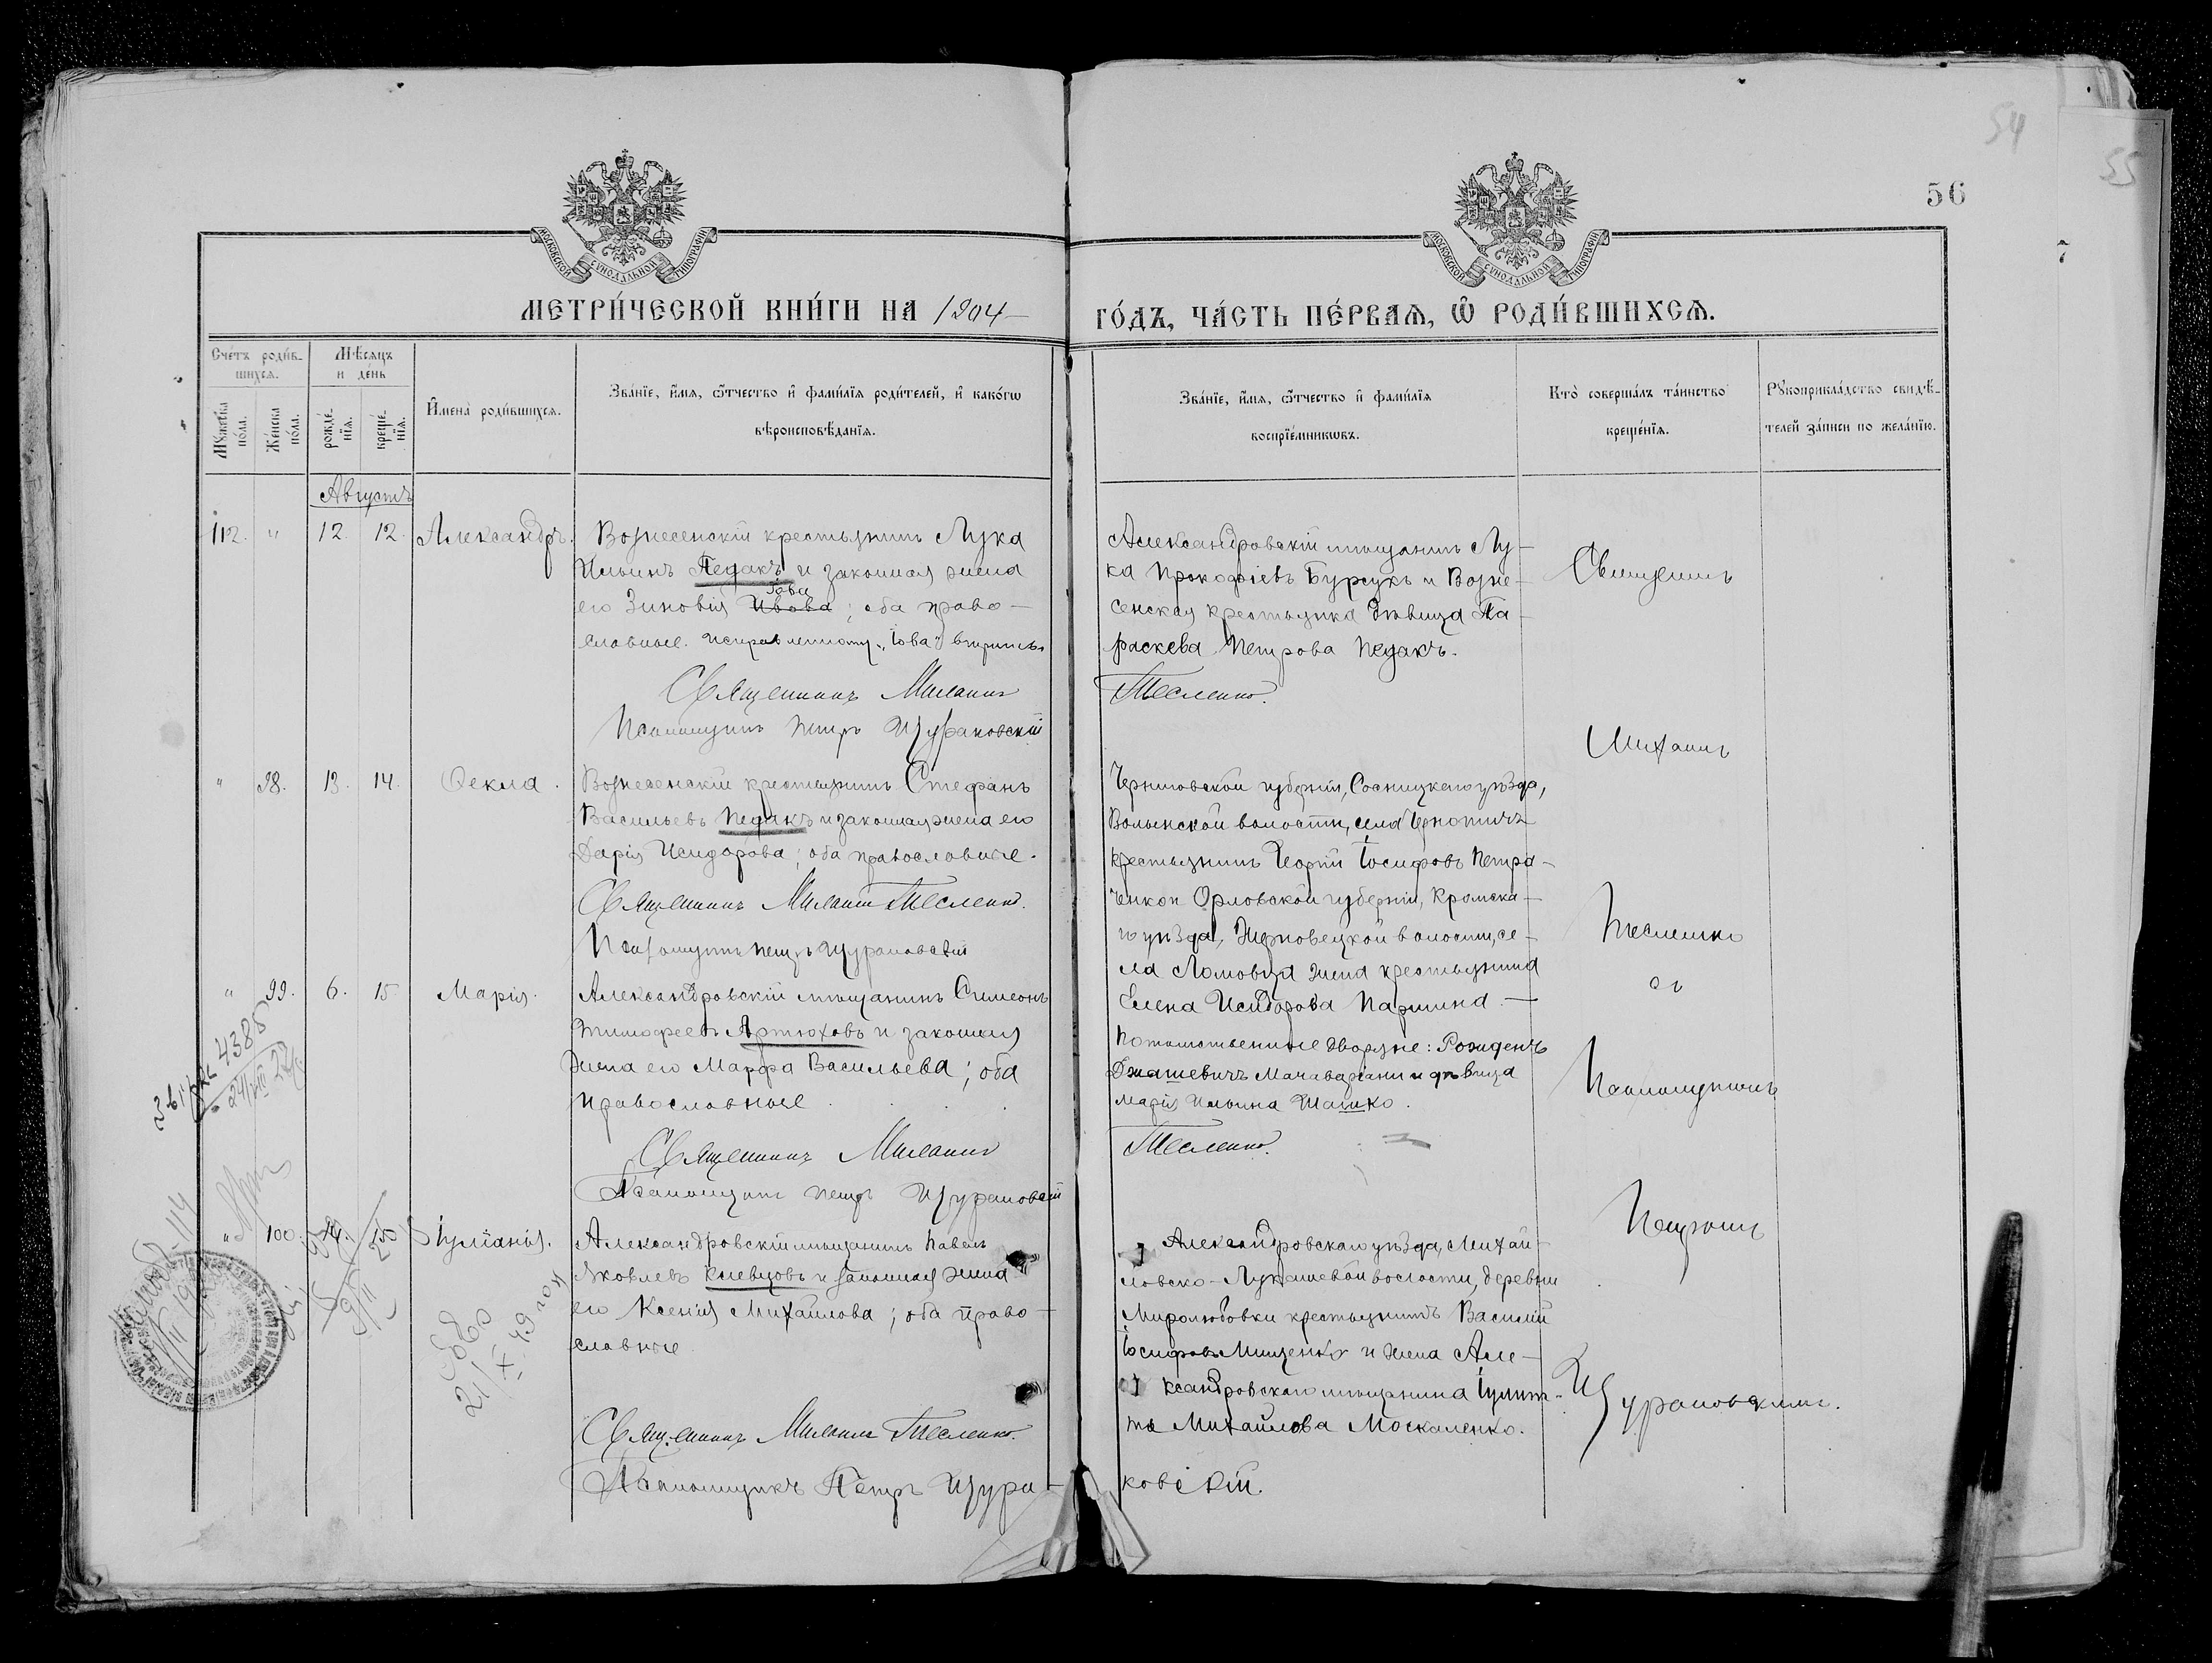 54
55
56
МОСКОВСКОЙ СѴНОДАЛЬНОЙ ТИПОГРАФІИ
МОСКОВСКОЙ СѴНОДАЛЬНОЙ ТИПОГРАФІИ
МЕТРИ́ЧЕСКОЙ КНИ́ГИ НА 1904
ГО́ДЪ, ЧА́СТЬ ПЕ́РВАѦ, Ѡ҆ РОДИ́ВШИХСѦ.
Сче́тъ роди́в-
шихсѧ.
Мꙋ́жеска по́ла.
Же́нска по́ла.
Мѣ́сѧцъ
и де́нь
рожде́-
нїѧ.
креще́-
нїѧ.
И҆мена̀ роди́вшихсѧ.
Зва́нїе, и҆́мѧ, ѻ҆́тчество и҆ фами́лїѧ роди́телей, и҆ како́гѡ
вѣроисповѣ́данїѧ.
Зва́нїе, и҆́мѧ, ѻ҆́тчество и҆ фами́лїѧ
воспрїе́мникѡвъ.
Кто̀ соверша́лъ та́инство
креще́нїѧ.
Рꙋкоприкла́дство свидѣ́-
телей за́писи по жела́нїю.
Августъ
112. " 12. 12. Александръ.
Вознесенскій крестьянинъ Лука
Ильинъ Педакъ и законная жена
Іова
его Зиновія Ивова; оба право-
славные. Исправленному "Іова" вѣрить.
Священникъ Михаилъ
Псаломщикъ Петръ Щурановскій
Александровскій мѣщанинъ Лу-
ка Прокофіевъ Бурсукъ и Возне-
сенская крестьянка дѣвица Па-
раскева Петрова Педакъ.
Тесленко.
" 98. 13. 14. Ѳекла.
Вознесенскій крестьянинъ Стефанъ
Васильевъ Педакъ и законная жена его
Дарія Исидорова; оба православные.
Священникъ Михаилъ Тесленко.
Псаломщикъ Петръ Щурановскій
Черниговской губерніи, Сосницкаго уѣзда,
Волынской волости, села
крестьянинъ Георгій Іосифовъ Петра-
ченко и Орловской губерніи, Кромска-
го уѣзда, волости, се-
ла Ломовца жена крестьянина
Елена Исидорова Паршина.
" 99. 6. 15. Марія.
Александровскій мѣщанинъ Симеонъ
Тимофеевъ Артюховъ и законная
жена его Марфа Васильева; оба
православные.
Священникъ Михаилъ
Псаломщикъ Петръ Щурановскій
Потомственные дворяне: Рожденъ
Джашевичъ Мачаваріани и дѣвица
Марія Ильина Шашко.
Тесленко.
" 100. 14. 15 Іуліанія.
Александровскій мѣщанинъ Павелъ
Яковлевъ Клевцовъ и законная жена
его Ксенія Михайлова; оба право-
славные
Священникъ Михаилъ Тесленко.
Псаломщикъ Петръ Щура-
новскій.
Александровскаго уѣзда, Михай-
ловско-Лукашевой волости, деревни
Миролюбовки крестьянинъ Василій
Іосифовъ Мищенко и жена Але-
ксандровскаго мѣщанина Іулит-
та Михайлова Москаленко.
Священникъ
Михаилъ
Тесленко
съ
Псаломщикомъ
Петромъ
Щурановскимъ.
4385
21/X 49 год